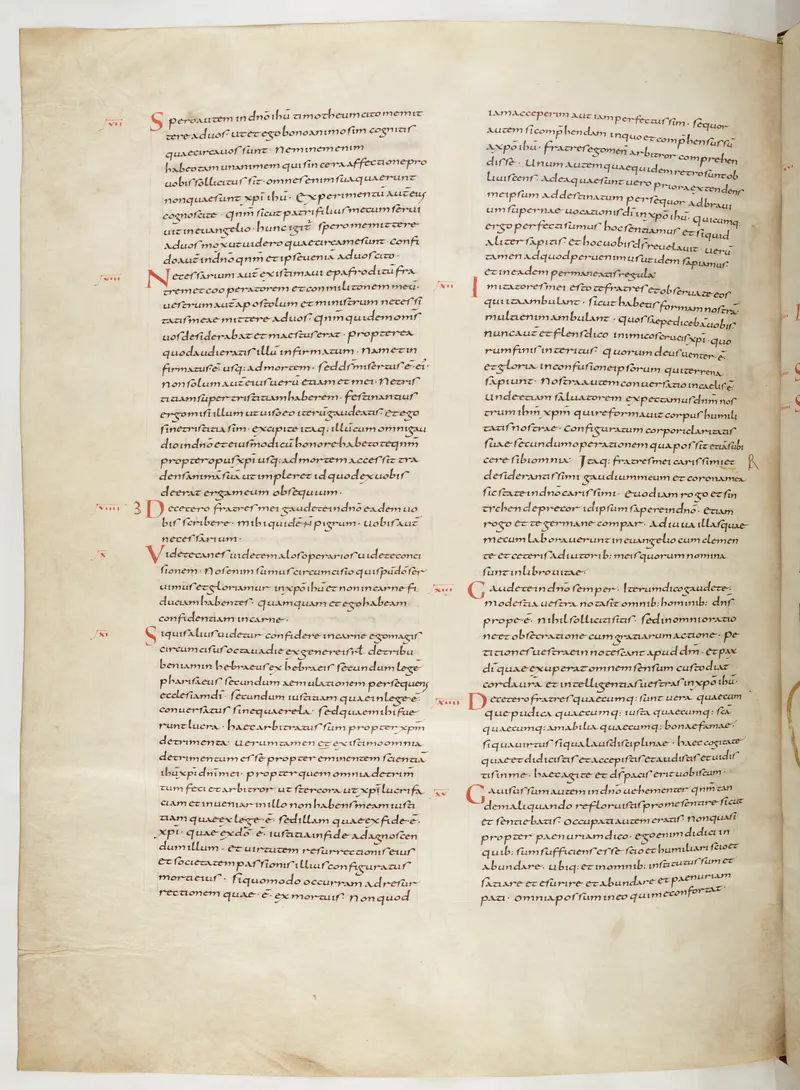 VII
Spero autem in dnō ihū timotheum cito me mit
tere ad uos · ut et ego bono animo sim cognitis
quae circa uos sunt · Neminem enim
habeo tam unanimem qui sincera affectione pro
uobis sollicitus sit · omnes enim sua quaerunt
non quae sunt xpī ihū · Experimentū autē eius
cognoscite · qnm̄ sicut patri filius mecum serui
uit in euangelio · hunc igit̄ spero me mittere
ad uos mox ut uidero quae circa me sunt · confi
do aut̄ in dnō qnm̄ et ipse ueniā ad uos cito ·
VIII
Necessarium aut̄ existimaui epafroditū fra
trem et cooperatorem et conmilitonem meū ·
uestrum aut̄ apostolum et ministrum necessi
tatis meae mittere ad uos · qnm̄ quidem oms̄
uos desiderabat et maestus erat · propterea
quod audieratis illū infirmatum · Nam et in
firmatus ē usq; ad mortem · sed ds̄ misertus ē ei ·
non solum aut̄ eius uerū etiam et mei · Ne tris
titiam super tristitiam haberem · festinantius
ergo misi illum ut uiso eo iterū gaudeatis · et ego
sine tristitia sim · excipite itaq; illū cum omni gau
dio in dnō et eiusmodi cū honore habetote qnm̄
propter opus xpī usq; ad mortem accessit tra
dens animā suā ut impleret id quod ex uobis
deerat erga meum obsequium ·
VIIII
3 De cetero fratres mei gaudete in dnō eadem uo
bis scribere · mihi quidē ñ pigrum · uobis aut̄
necessarium ·
X
Videte canes uidete malos operarios uidete conci
sionem · Nos enim sumus circumcisio qui spū dō ser
uimus et gloriamur in xpō ihū et non in carne fi
duciam habentes · quamquam et ego habeam
confidentiam in carne ·
XI
Si quis alius uidetur confidere in carne ego magis
circumcisus octaua die ex genere isrl̄ de tribu
beniamin hebraeus ex hebraeis secundum lege
pharisaeus secundum aemulationem persequens
ecclesiam dī · secundum iustitiam quae in lege ē
conuersatus sine quaerela · sed quae mihi fue
runt lucra · haec arbitratus sum propter xpm̄
detrimenta · uerumtamen et existimo omnia
detrimentum esse propter eminentem scientiā
ihū xpī dnī mei · propter quem omnia detrim̄
tum feci et arbitror ut stercora ut xpī lucrifa
ciam et inueniar in illo non habens meam iusti
tiam quae ex lege ē · sed illam quae ex fide ē ·
xpī · quae ex dō · ē · iustitia in fide ad agnoscen
dum illum · et uirtutem resurrectionis eius
et societatem passionis illius configuratus
morti eius · si quo modo occurram ad resur
rectionem quae · ē · ex mortuis · Non quod
iam acceperim aut iam perfectus sim · sequor
autem si comp̄hendam in quo et comp̄hensus sū
a xpō ihū · fratres ego me ñ arbitror comprehen
disse · Unum autem quae quidem retro sunt ob
liuiscens · ad ea quae sunt uero priora extendens
me ipsum ad destinatum persequor ad braui
um supernae uocationis dī in xpō ihū · quicumq;
ergo perfecti sumus hoc sentiamus · et si quid
aliter sapitis et hoc uobis ds̄ reuelauit · uerū
tamen ad quod peruenimus ut idem sapiamus ·
et in eadem permaneatis regula ·
XII
Imitatores mei estote fratres et obseruate eos
qui ita ambulant · sicut habetis formam nostrā ·
multi enim ambulant · quos saepe dicebā uobis
nunc aut̄ et flens dico inimicos crucis xpī · quo
rum finis interitus · quorum deus uenter · ē
et gloria in confusione ipsorum qui terrena
sapiunt · Nostra autem conuersatio in caelis ē ·
Unde etiam saluatorem expectamus dnm̄ nos
trum ihm̄ xpm̄ qui reformauit corpus humili
tatis nostrae · configuratum corpori claritatis
suae secundum operationem qua possit etiā subi
cere sibi omnia · Itaq; fratres mei carissimi et
desiderantissimi gaudium meum et corona mea
sic state in dnō carissimi · Euodiam rogo et sin
tychen deprecor id ipsum sapere in dnō · etiam
rogo et te germane compar · adiuua illas quae
mecum laborauerunt in euangelio cum clemen
te et ceteris adiutorib; meis quorum nomina
sunt in libro uitae ·
XIII
Gaudete in dnō semper · Iterum dico gaudete ·
modestia uestra nota sit omnib; hominib; dns̄
prope · ē · nihil solliciti sitis · sed in omni oratio
ne et obsecratione cum gratiarum actione · pe
titiones uestrae innotescant apud dm̄ · et pax
dī quae exuperat omnem sensum custodiat
corda ur̄a et intelligentias uestras in xpō ihū ·
XIIII
De cetero fratres quaecumq; sunt uera quaecum
que pudica quaecumq; iusta quaecumq; scā
quaecumq; amabilia quaecumq; bonae famae ·
si qua uirtus si qua laus disciplinae · haec cogitate
quae et didicistis et accepistis et audistis et uidis
tis in me · haec agite et ds̄ pacis erit uobiscum ·
XV
Gauisus sum autem in dnō uehementer qnm̄ tan
dem aliquando refloruistis pro me sentire sicut
et sentiebatis · occupati autem eratis · non quasi
propter paenuriam dico · ego enim didici in
quib; sum sufficiens esse scio et humiliari scio et
abundare · ubiq; et in omnib; institutus sum et
satiare et esurire et abundare et paenuriam
pati · omnia possum in eo qui me confortat ·